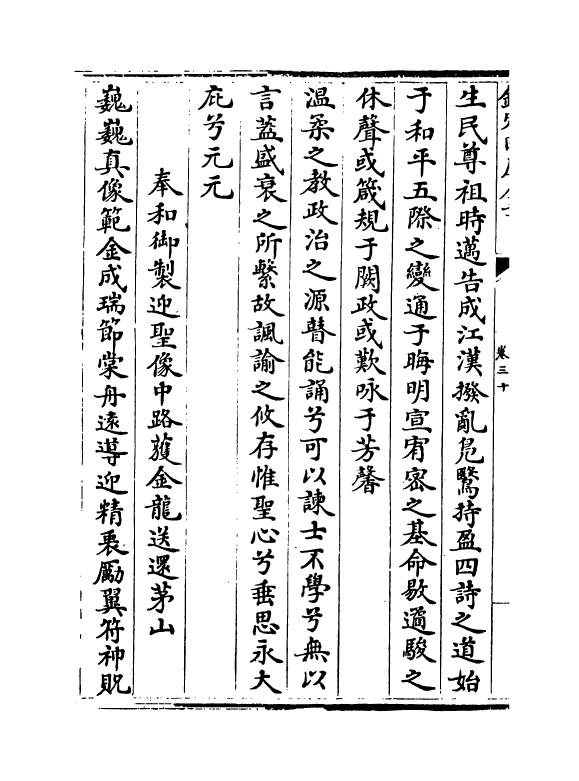 卷三十
生民尊祖時邁告成江漢撥亂鳧鷖持盈四詩之道始
于和平五際之變通于晦明宣宥宻之基命敭遹駿之
休聲或箴規于闕政或歎咏于芳馨
溫柔之教政治之源瞽能誦兮可以諫士不學兮無以
言葢盛衰之所繫故諷諭之攸存惟聖心兮垂思永大
庇兮元元
奉和御製迎聖像中路獲金龍送還茅山
巍巍真像範金成瑞節棠舟逺導迎精裹勵翼符神貺